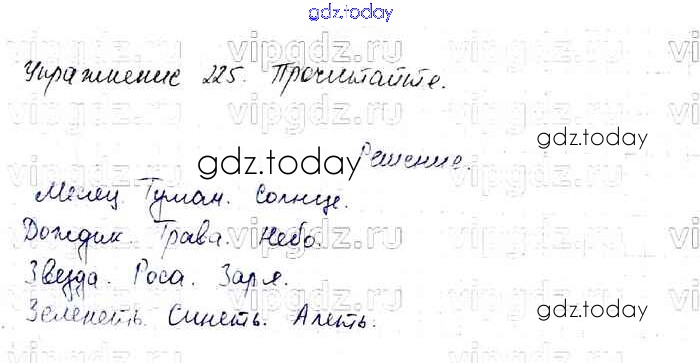 gdz.today
Упражнение 225. Прочитайте.
gdz.today
gdz.today
Решение.
Месяц. Туман. Солнце.
Дождик. Трава. Небо.
Звезда. Роса. Заря.
gdz.today
Зеленеть. Синеть. Алеть.